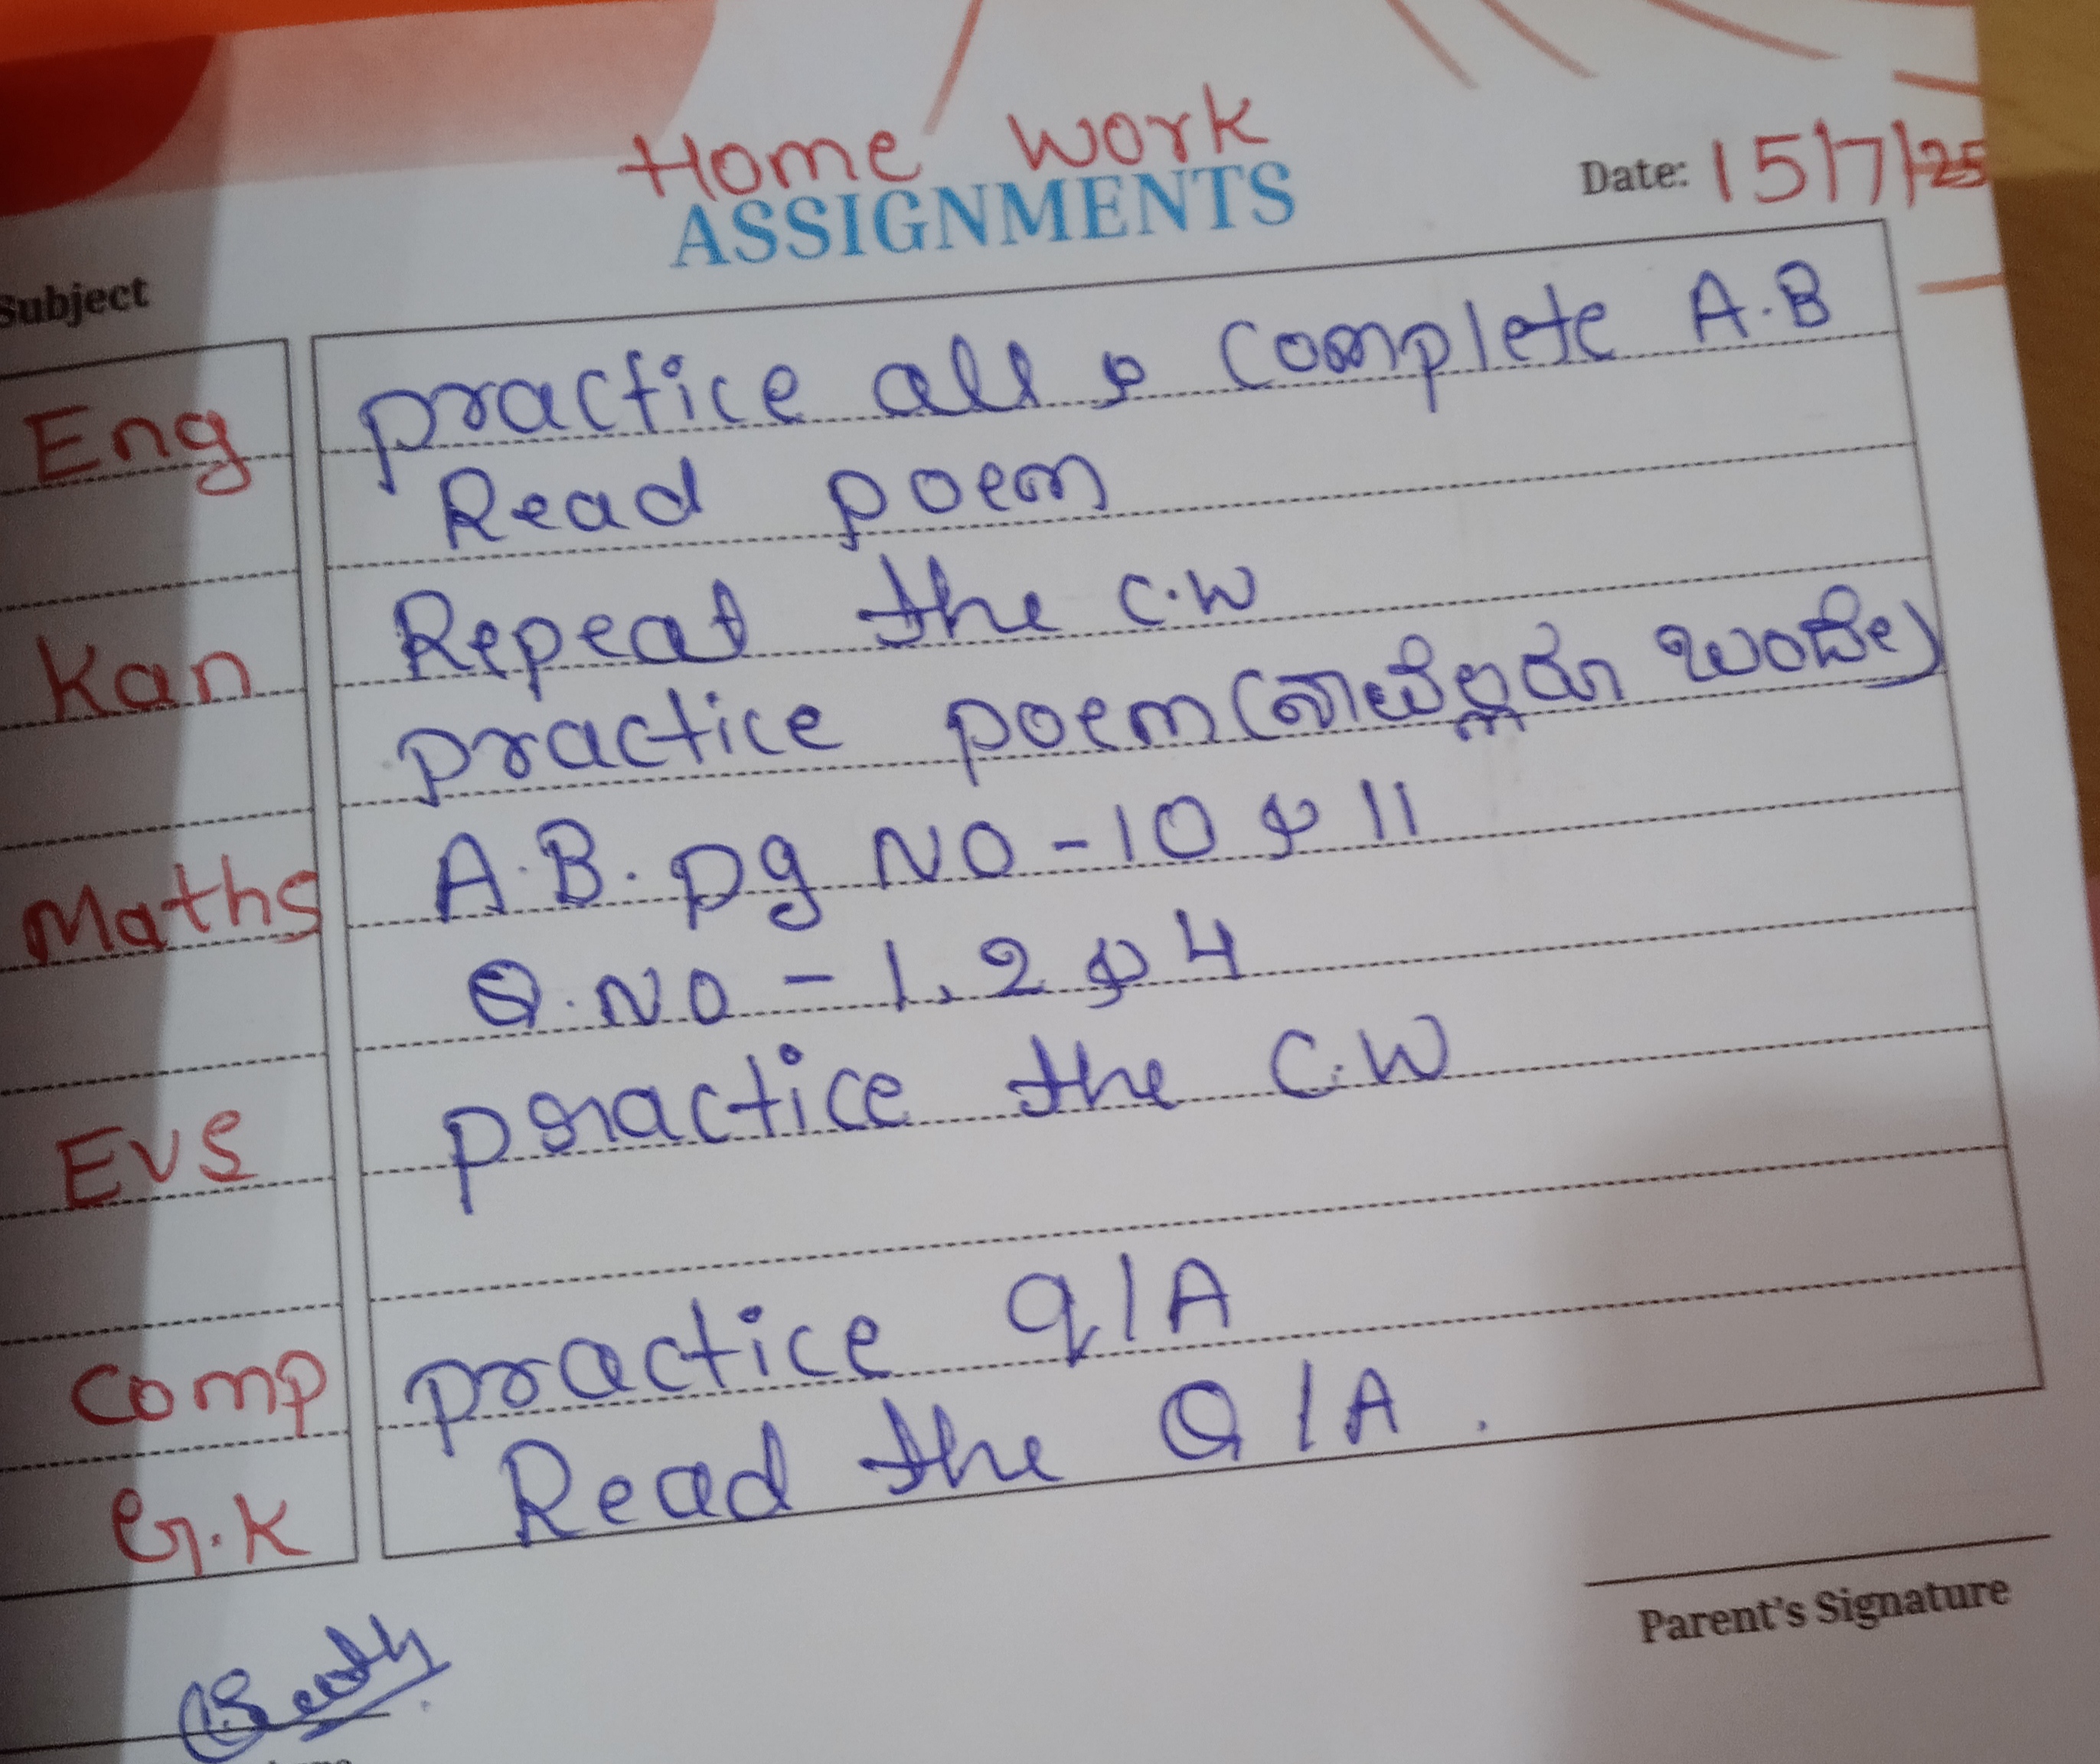 Home Work
ASSIGNMENTS
Date: 15/7/25
Subject
Eng practice all & Complete A.B
Read poem
Kan Repeat the C.W
practice poem (ನಾವೆಲ್ಲರೂ ಒಂದೇ)
Maths A.B. pg NO - 10 & 11
Q.NO - 1, 2 & 4
EVS practice the C.W
Comp practice q/A
G.K Read the Q/A.
Parent's Signature